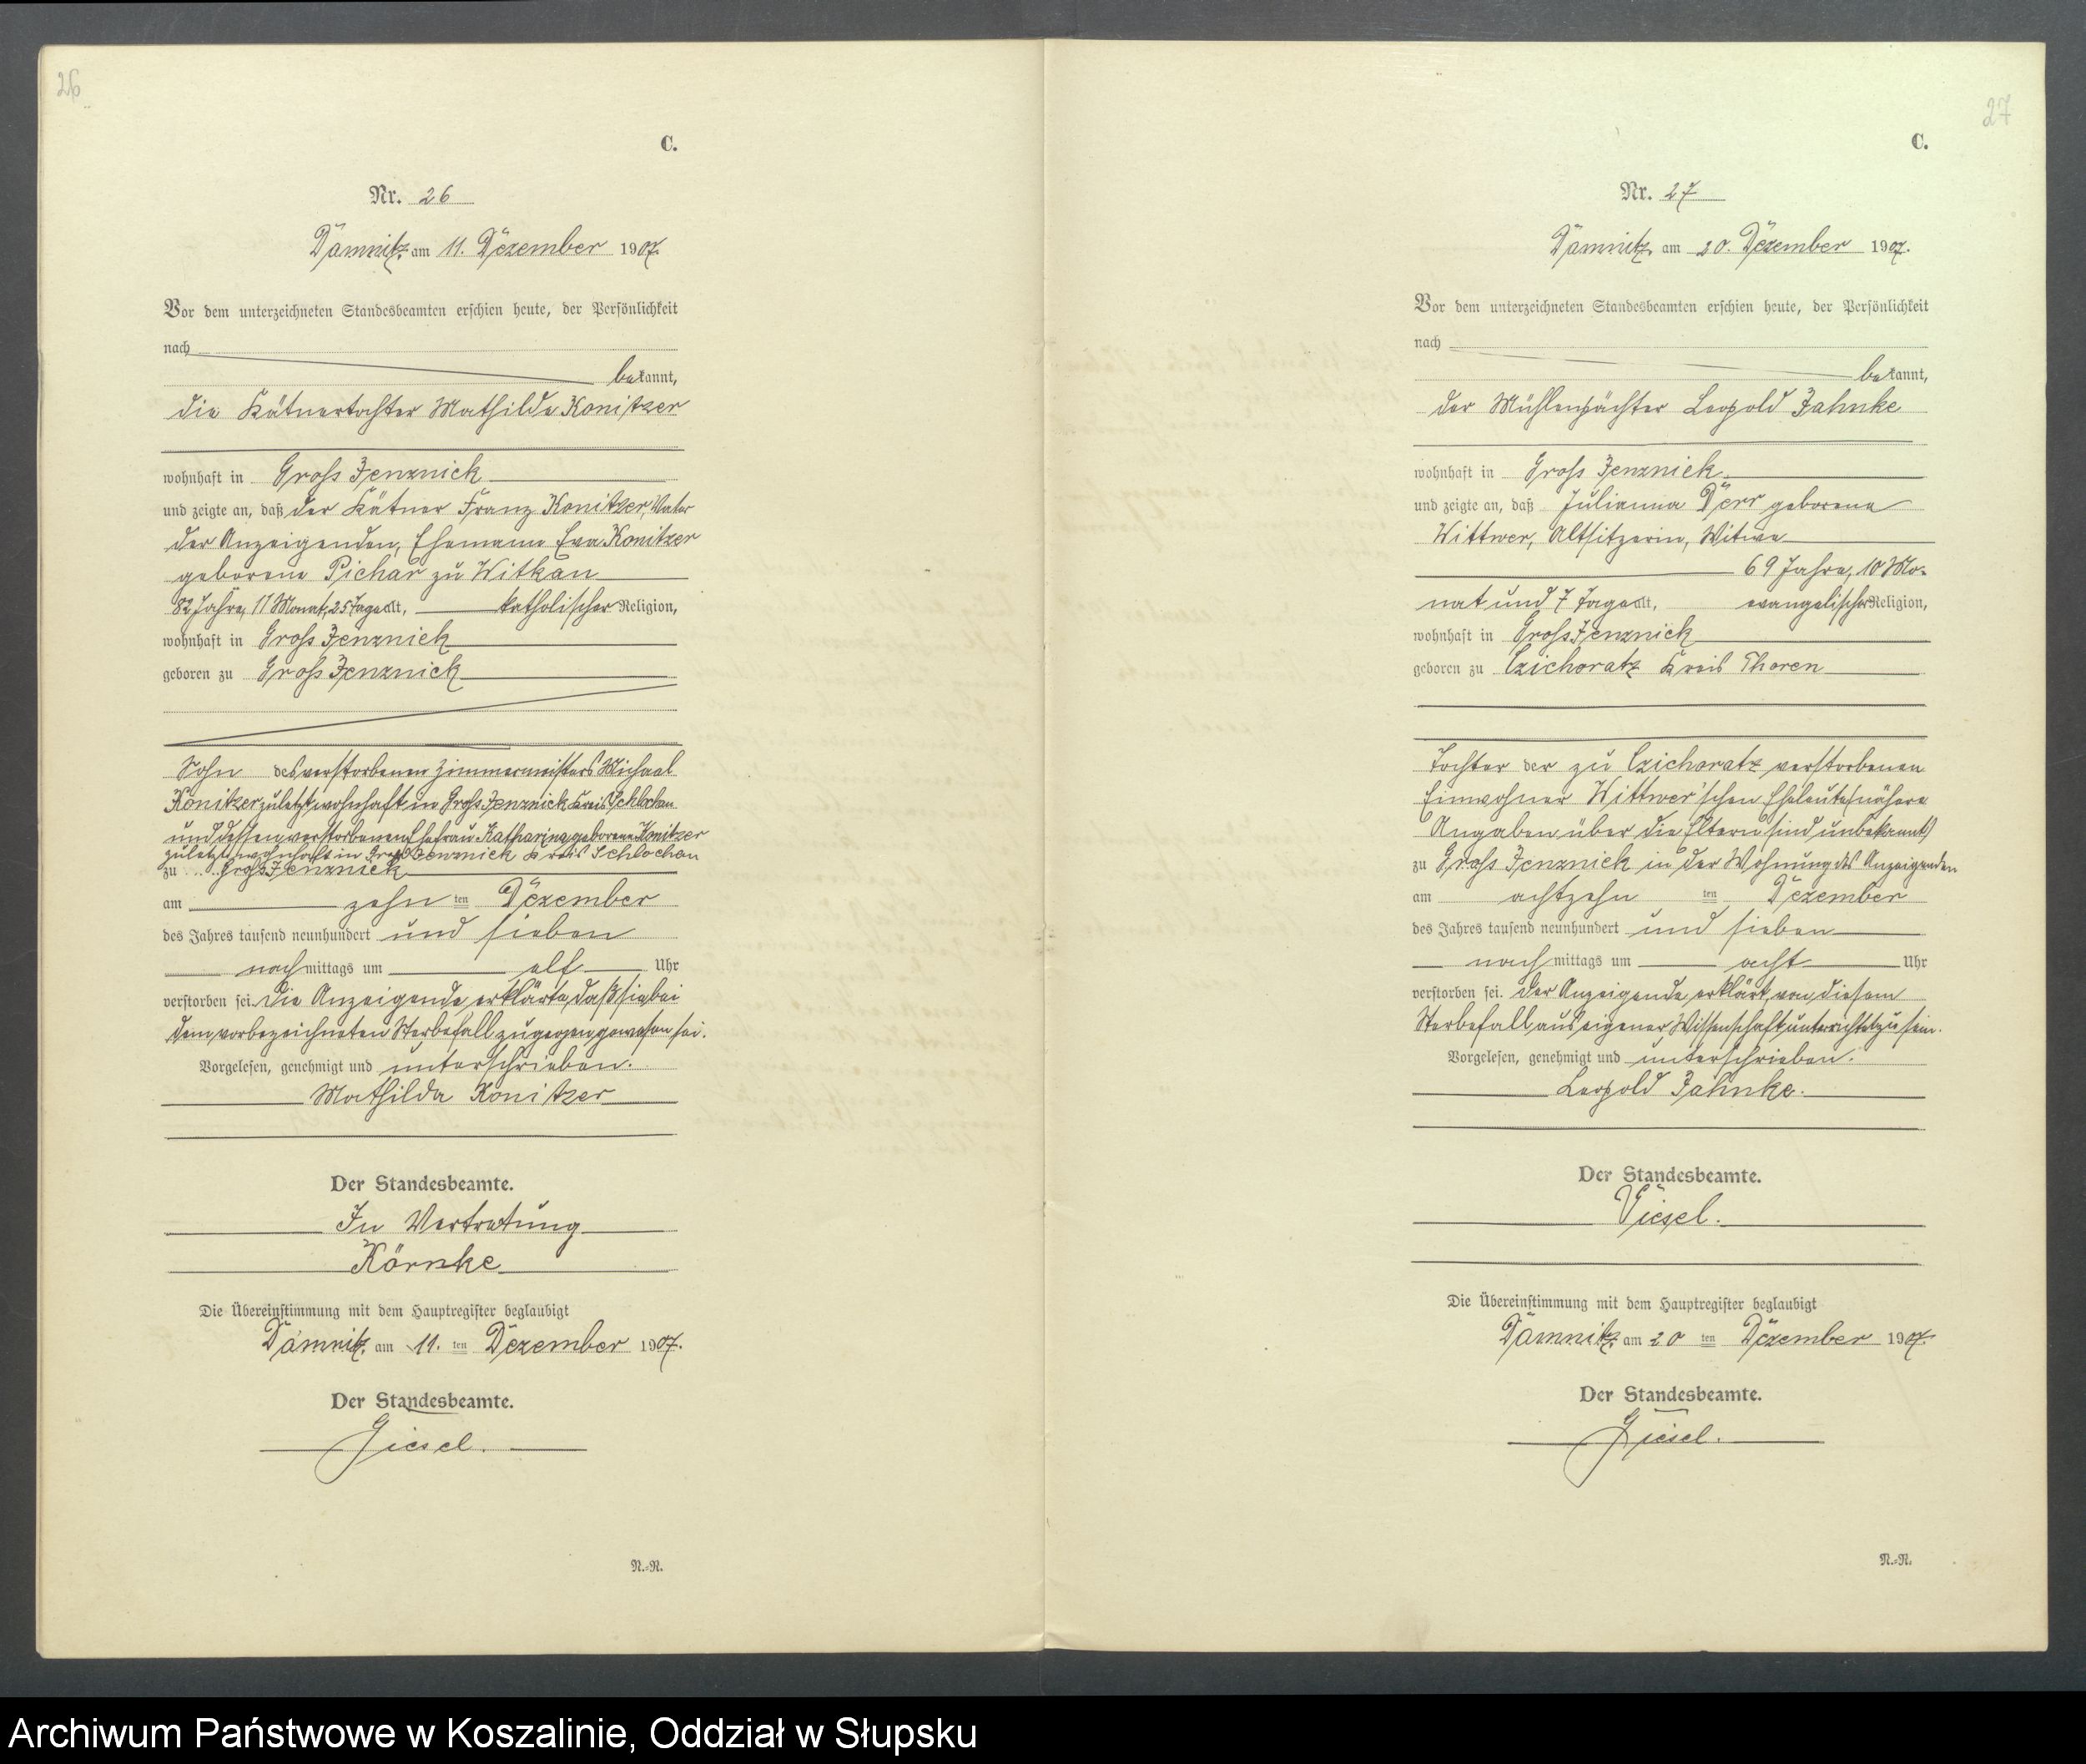 26
C.
Nr. 26
Damnitz am 11. Dezember 1907.
Vor dem unterzeichneten Standesbeamten erschien heute, der Persönlichkeit
nach
bekannt,
die Kätnertochter Mathilde Konitzer
wohnhaft in Gross Jenznick
und zeigte an, daß der Kätner Franz Konitzer, Vater
der Anzeigenden, Ehemann Eva Konitzer
geborene Pichar zu Witkau
82 Jahre, 11 Monat, 25 Tage alt, katholischer Religion,
wohnhaft in Gross Jenznick
geboren zu Gross Jenznick
Sohn des verstorbenen Zimmermeisters Michael
Konitzer zuletzt wohnhaft in Gross Jenznick Kreis Schlochau
und dessen verstorbenen Ehefrau Katharina geborene Konitzer
zuletzt wohnhaft in Gross Jenznick Kreis Schlochau
zu Gross Jenznick
am zehn ten Dezember
des Jahres tausend neunhundert und sieben
nachmittags um elf Uhr
verstorben sei. Die Anzeigende erklärte, daß sie bei
dem vorbezeichneten Sterbefall zugegen gewesen sei.
Vorgelesen, genehmigt und unterschrieben.
Mathilda Konitzer
Der Standesbeamte.
In Vertretung
Körnke
Die Übereinstimmung mit dem Hauptregister beglaubigt
Damnitz, am 11. ten Dezember 1907.
Der Standesbeamte.
Giesel.
N.=R.
27
C.
Nr. 27
Damnitz, am 20. Dezember 1907.
Vor dem unterzeichneten Standesbeamten erschien heute, der Persönlichkeit
nach
bekannt,
der Mühlenpächter Leopold Jahnke
wohnhaft in Gross Jenznick
und zeigte an, daß Julianna Derr geborene
Wittwer, Altsitzerin, Witwe
69 Jahre, 10 Mo-
nat und 7 Tage alt, evangelischer Religion,
wohnhaft in Gross Jenznick
geboren zu Czichoratz Kreis Thoren
Tochter der zu Czichoratz verstorbenen
Einwohner Wittwer'schen Eheleute (nähere
Angaben über die Eltern sind unbekannt)
zu Gross Jenznick in der Wohnung des Anzeigenden
am achtzehn ten Dezember
des Jahres tausend neunhundert und sieben
nachmittags um acht Uhr
verstorben sei. Der Anzeigende erklärt, von diesem
Sterbefall aus eigener Wissenschaft unterrichtet zu sein.
Vorgelesen, genehmigt und unterschrieben.
Leopold Jahnke.
Der Standesbeamte.
Giesel.
Die Übereinstimmung mit dem Hauptregister beglaubigt
Damnitz, am 20 ten Dezember 1907.
Der Standesbeamte.
Giesel.
N.=R.
Archiwum Państwowe w Koszalinie, Oddział w Słupsku